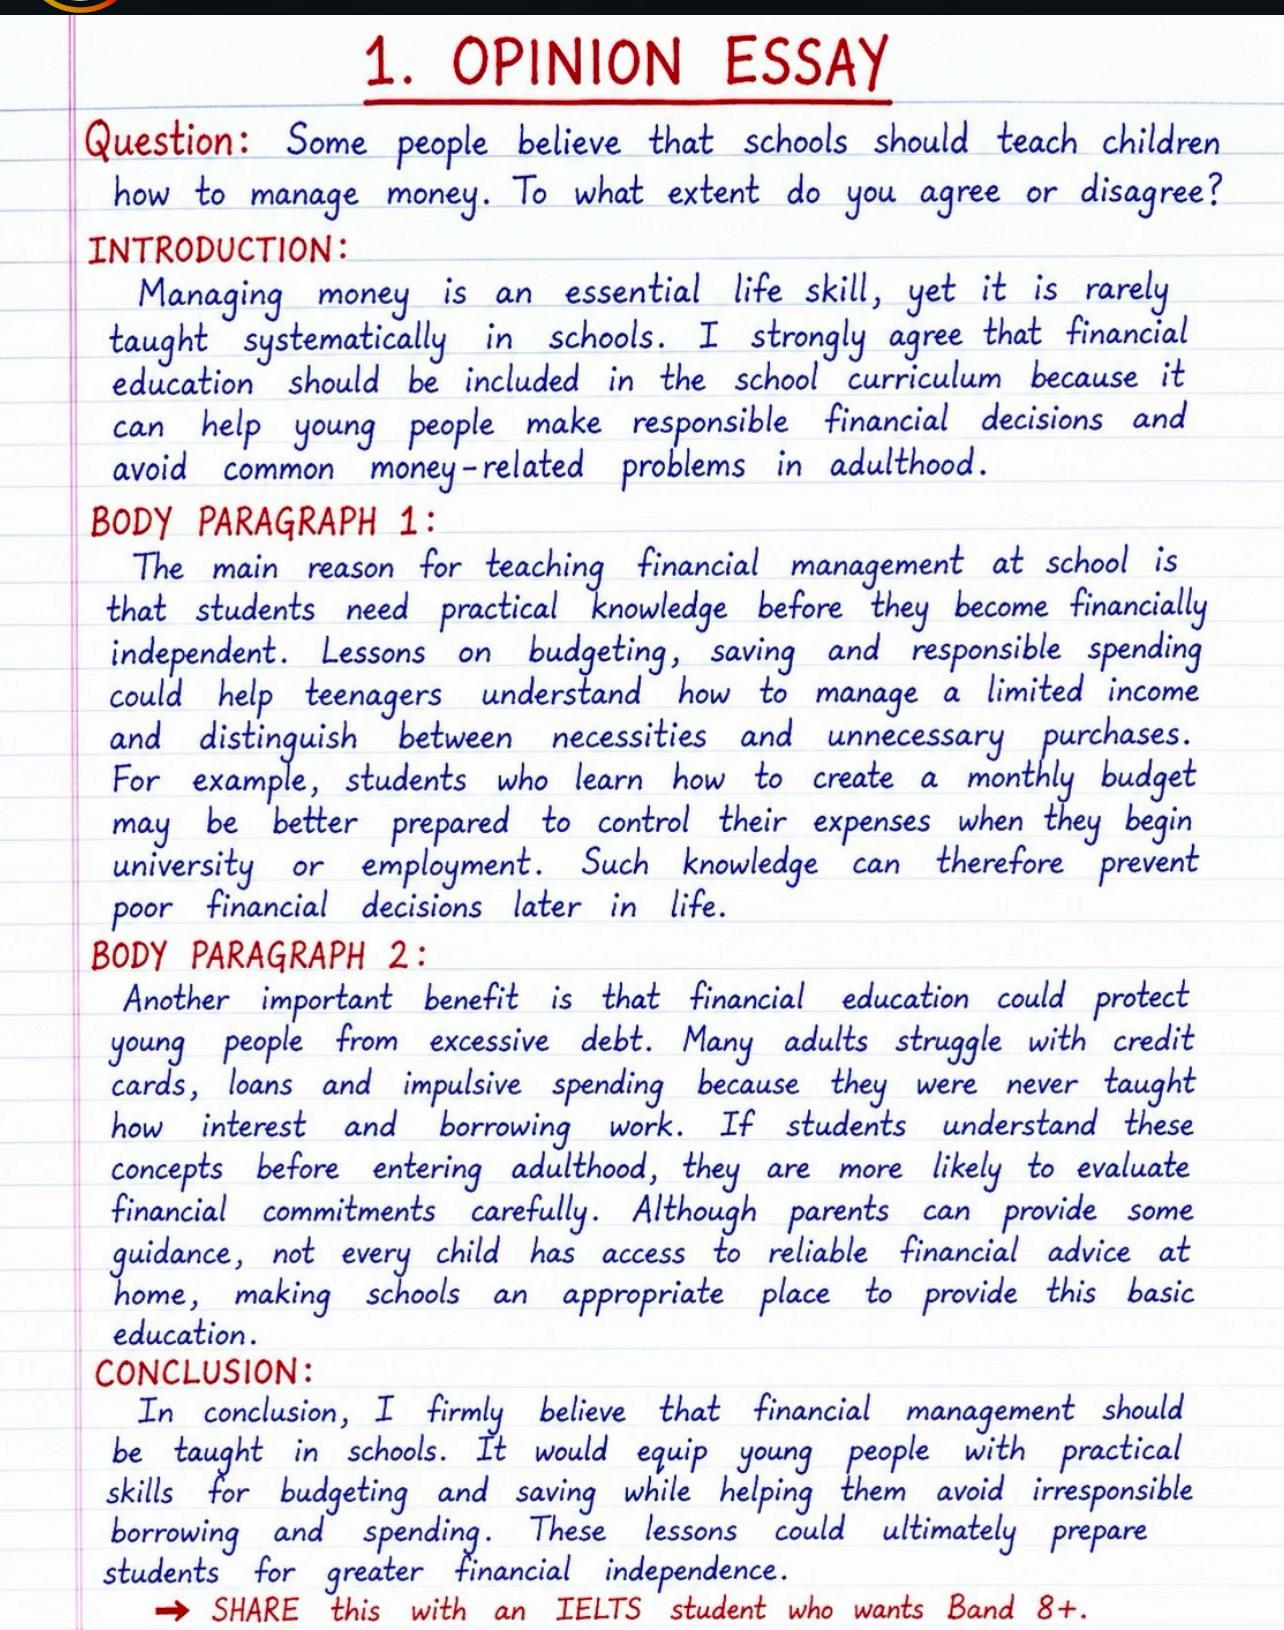 1. OPINION ESSAY
Question: Some people believe that schools should teach children
how to manage money. To what extent do you agree or disagree?
INTRODUCTION:
Managing money is an essential life skill, yet it is rarely
taught systematically in schools. I strongly agree that financial
education should be included in the school curriculum because it
can help young people make responsible financial decisions and
avoid common money-related problems in adulthood.
BODY PARAGRAPH 1:
The main reason for teaching financial management at school is
that students need practical knowledge before they become financially
independent. Lessons on budgeting, saving and responsible spending
could help teenagers understand how to manage a limited income
and distinguish between necessities and unnecessary purchases.
For example, students who learn how to create a monthly budget
may be better prepared to control their expenses when they begin
university or employment. Such knowledge can therefore prevent
poor financial decisions later in life.
BODY PARAGRAPH 2:
Another important benefit is that financial education could protect
young people from excessive debt. Many adults struggle with credit
cards, loans and impulsive spending because they were never taught
how interest and borrowing work. If students understand these
concepts before entering adulthood, they are more likely to evaluate
financial commitments carefully. Although parents can provide some
guidance, not every child has access to reliable financial advice at
home, making schools an appropriate place to provide this basic
education.
CONCLUSION:
In conclusion, I firmly believe that financial management should
be taught in schools. It would equip young people with practical
skills for budgeting and saving while helping them avoid irresponsible
borrowing and spending. These lessons could ultimately prepare
students for greater financial independence.
→ SHARE this with an IELTS student who wants Band 8+.